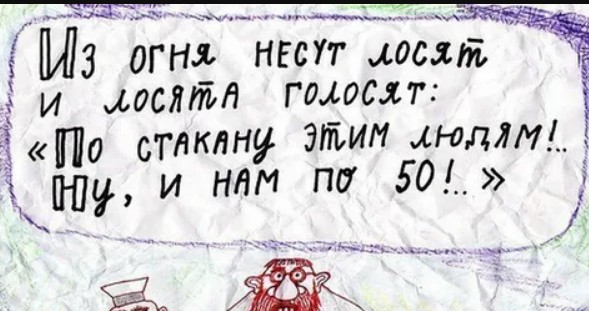 Из огня несут лосят
и лосята голосят:
«По стакану этим людям!..
Ну, и нам по 50!..»